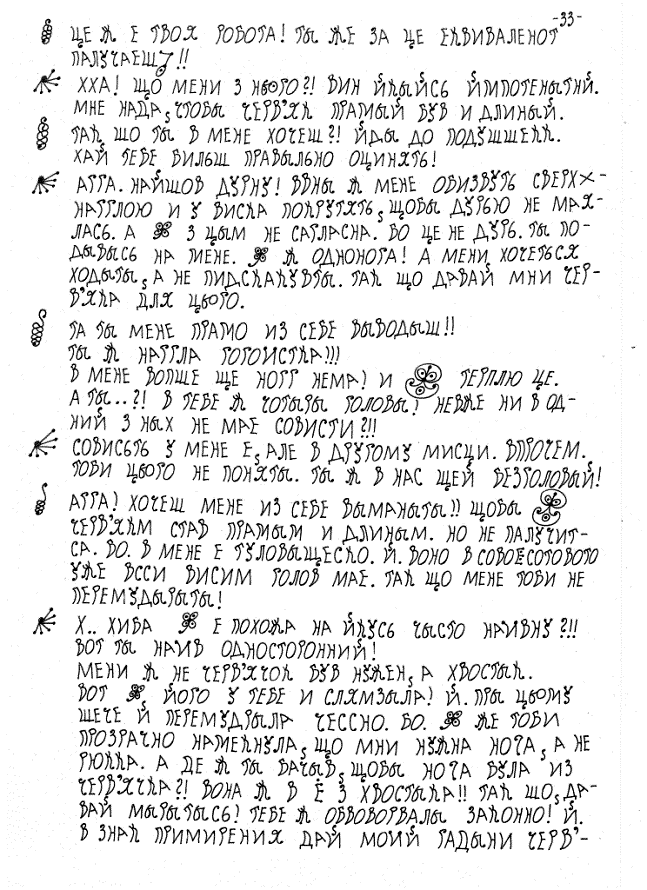 -33-
ЦЕ Ж Е ТВОЯ РОБОТА! ТЫ ЖЕ ЗА ЦЕ ЕКВИВАЛЕНОТ
ПАЛУЧАЕШ!!
ХХА! ЩО МЕНИ З НЬОГО?! ВИН ЙКЫЙСЬ ЙМПОТЕНЫТНЙ.
МНЕ НАДА, ЧТОБЫ ЧЕРВ'ЯК ПРАМЫЙ БУВ И ДЛИНЫЙ.
ТАК ЩО ТЫ В МЕНЕ ХОЧЕШ?! ЙДЫ ДО ПОДУШШЕКК.
ХАЙ ТЕБЕ ВИЛЬШ ПРАВЫЛЬНО ОЦИНЯТЬ!
АГГА. НАЙШОВ ДУРНУ! ВВНЫ Ж МЕНЕ ОБИЗВУТЬ СВЕРХ-
НАГГЛОЮ И У ВИСКА ПОКРУТЯТЬ, ЩОБЫ ДУРЬЮ НЕ МАЯ-
ЛАСЬ. А З ЦЫМ НЕ САГЛАСНА. БО ЦЕ НЕ ДУРЬ. ТЫ ПО-
ДЫВЫСЬ НА МЕНЕ. Ж ОДНОНОГА! А МЕНИ ХОЧЕТЬСЯ
ХОДЫТЫ, А НЕ ПИДСКАКУВТЫ. ТАК ЩО ДАВАЙ МНИ ЧЕР-
В'ЯКА ДЛЯ ЦЬОГО.
ТА ТЫ МЕНЕ ПРАМО ИЗ СЕБЕ ВЫВОДЫШ!!
ТЫ Ж НАГГЛА ГОГОИСТКА!!!
В МЕНЕ ВОПЩЕ ЩЕ НОГГ НЕМА! И ТЕРПЛЮ ЦЕ.
А ТЫ..?! В ТЕБЕ Ж ЧОТЫРЫ ГОЛОВЫ! НЕВЖЕ НИ В ОД-
НИЙ З НЫХ НЕ МАЕ СОВИСТИ?!!
СОВИСЬТЬ У МЕНЕ Е, АЛЕ В ДРУГОМУ МИСЦИ. ВПРОЧЕМ.
ТОБИ ЦЬОГО НЕ ПОНЯТЫ. ТЫ Ж В НАС ЩЕЙ БЕЗГОЛОВЫЙ!
АГГА! ХОЧЕШ МЕНЕ ИЗ СЕБЕ ВЫМАНЫТЫ!! ЩОБЫ
ЧЕРВ'ЯКМ СТАВ ПРАМЫМ И ДЛИНЫМ. НО НЕ ПАЛУЧИТ-
СА. БО. В МЕНЕ Е ТУЛОВЫЩЕСКО. Й. ВОНО В СОВОЕСОТОВОТО
УЖЕ ВССИ ВИСИМ ГОЛОВ МАЕ. ТАК ЩО МЕНЕ ТОБИ НЕ
ПЕРЕМУДЫРЫТЫ!
Х.. ХИБА Е ПОХОЖА НА ЙКУСЬ ЧЫСТО НАИВНУ?!!
ВОТ ТЫ НАИВ ОДНОСТОРОННИЙ!
МЕНИ Ж НЕ ЧЕРВ'ЯЧОК БУВ НУЖЕН, А ХВОСТЫК.
ВОТ ЙОГО У ТЕБЕ И СЛЯМЗЫЛА! Й. ПРЫ ЦЬОМУ
ЩЕЧЕ Й ПЕРЕМУДРЫЛА ЧЕССНО. БО. ЖЕ ТОБИ
ПРОЗРАЧНО НАМЕКНУЛА, ЩО МНИ НУЖНА НОГА, А НЕ
РЮККА. А ДЕ Ж ТЫ БАЧЫВ, ЩОБЫ НОГА БУЛА ИЗ
ЧЕРВ'ЯЧКА?! ВОНА Ж В Ё З ХВОСТЫКА!! ТАК ЩО, ДА-
ВАЙ МЫРЫТЫСЬ! ТЕБЕ Ж ОБВОВОРВАЛЫ ЗАКОННО! Й.
В ЗНАК ПРИМИРЕНИЯ ДАЙ МОИЙ ГАДЫНИ ЧЕРВ'-